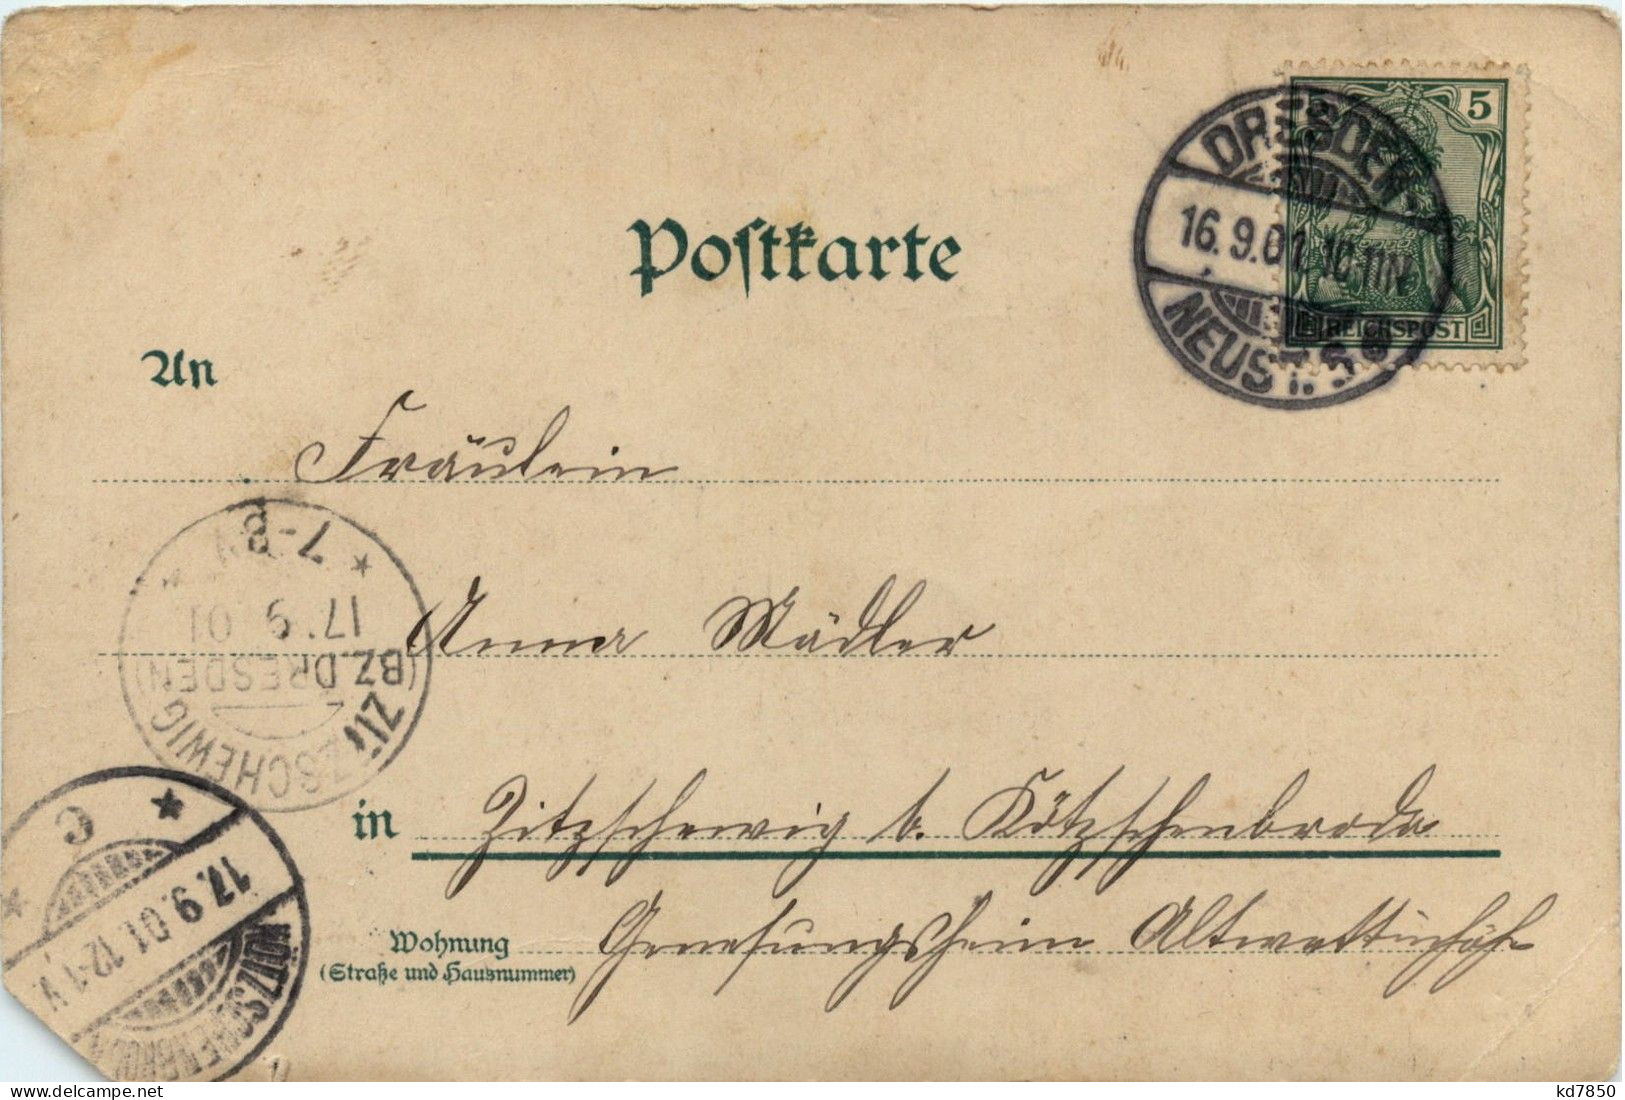 Postkarte
5
REICHSPOST
DRESDEN
16.9.01. 10-11N.
NEUST.
An
Fräulein
7-8V
17.9.01
(BZ. DRESDEN)
ZITZSCHEWIG
Anna Mädler
in Zitzschewig b. Kötzschenbroda
c
17.9.01. 12-1 V.
KÖTZSCHENBRODA
Wohnung
(Straße und Hausnummer)
Genesungsheim
kd7850